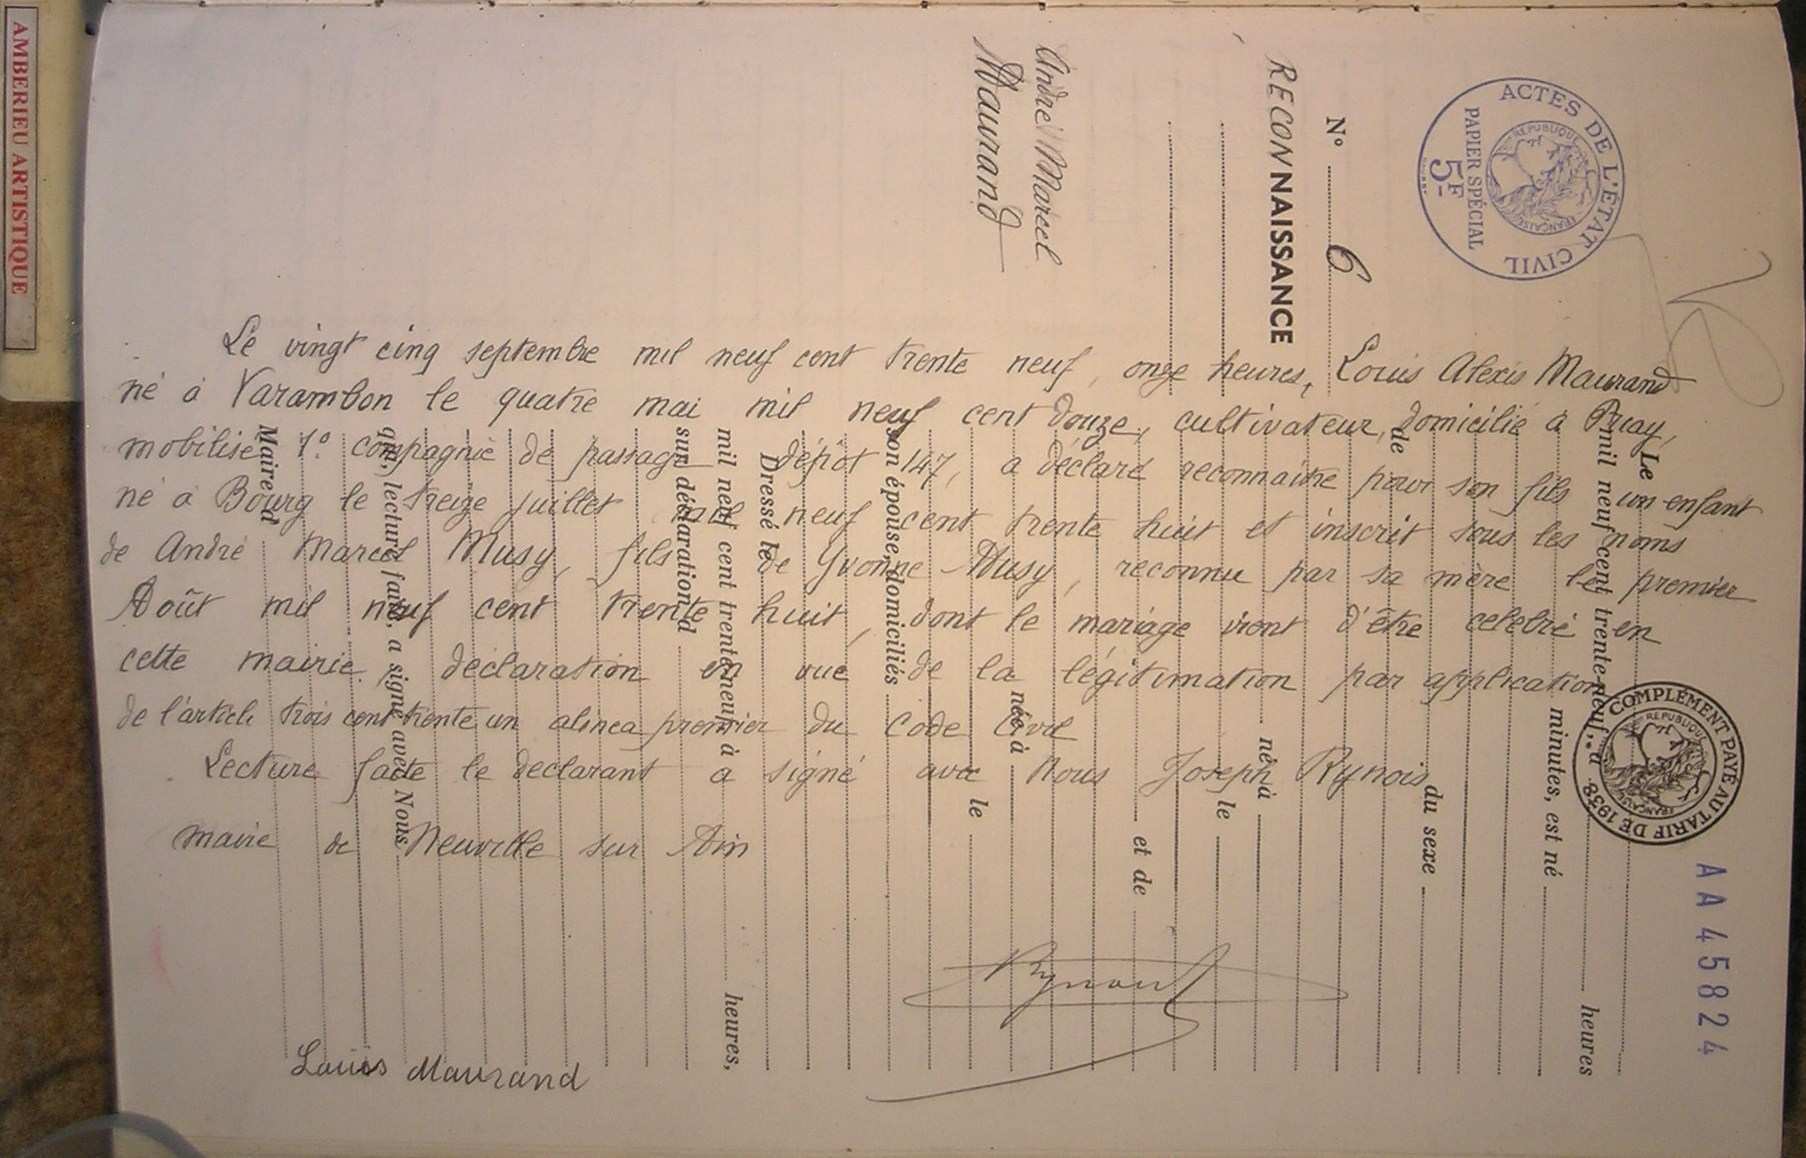 AMBERIEU ARTISTIQUE
ACTES DE L'ÉTAT CIVIL
PAPIER SPÉCIAL
5F
RÉPUBLIQUE FRANÇAISE
N° 6
RECONNAISSANCE
André Marcel
Maurand
Le vingt cinq septembre mil neuf cent trente neuf, onze heures, Louis Alexis Maurand
né à Varambon le quatre mai mil neuf cent douze, cultivateur, domicilié à
mobilisé 1° compagnie de passage dépôt 147, a déclaré reconnaitre pour son fils un enfant
né à Bourg le treize juillet mil neuf cent trente huit et inscrit sous les noms
de André Marcel Musy, fils de Yvonne Musy, reconnu par sa mère le premier
Août mil neuf cent trente huit, dont le mariage vient d'être célébré en
cette mairie, déclaration en vue de la légitimation par application
de l'article trois cent trente un alinea premier du Code Civil
Lecture faite le déclarant a signé avec Nous Joseph
maire de Neuville sur Ain
Louis Maurand
Le
heures
minutes, est né
mil neuf cent trente-neuf, à
du sexe
de
né à
le
et de
née à
le
son épouse, domiciliés
Dressé le
mil neuf cent trente-neuf, à heures,
sur déclaration d
qui, lecture faite, a signé avec Nous
Maire d
COMPLÉMENT PAYÉ AU TARIF DE 1938
RÉPUBLIQUE FRANÇAISE
AA 45824